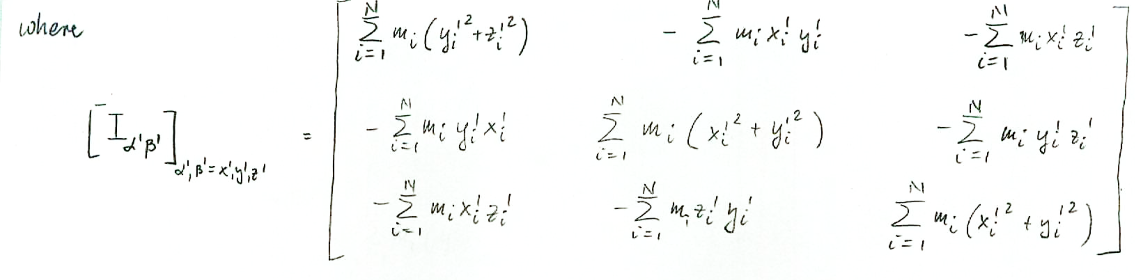 where
[I_{α'β'}]_{α',β'=x',y',z'} = [ \sum_{i=1}^{N} m_i (y_i'^2 + z_i'^2)   - \sum_{i=1}^{N} m_i x_i' y_i'   - \sum_{i=1}^{N} m_i x_i' z_i'
- \sum_{i=1}^{N} m_i y_i' x_i'   \sum_{i=1}^{N} m_i (x_i'^2 + y_i'^2)   - \sum_{i=1}^{N} m_i y_i' z_i'
- \sum_{i=1}^{N} m_i x_i' z_i'   - \sum_{i=1}^{N} m_i z_i' y_i'   \sum_{i=1}^{N} m_i (x_i'^2 + y_i'^2) ]